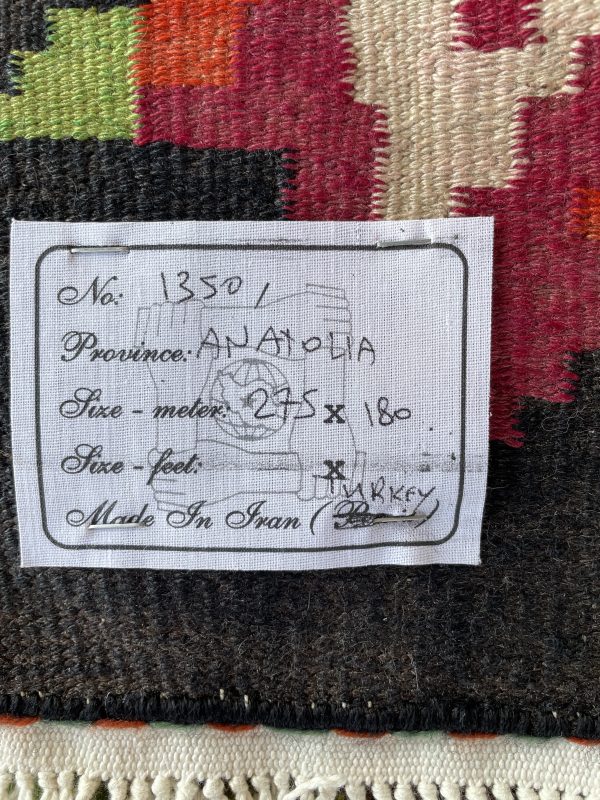 No: 1350,
Province: ANATOLIA
Size - meter: 275 x 180
Size - feet: x
TURKEY
Made In Iran ( )